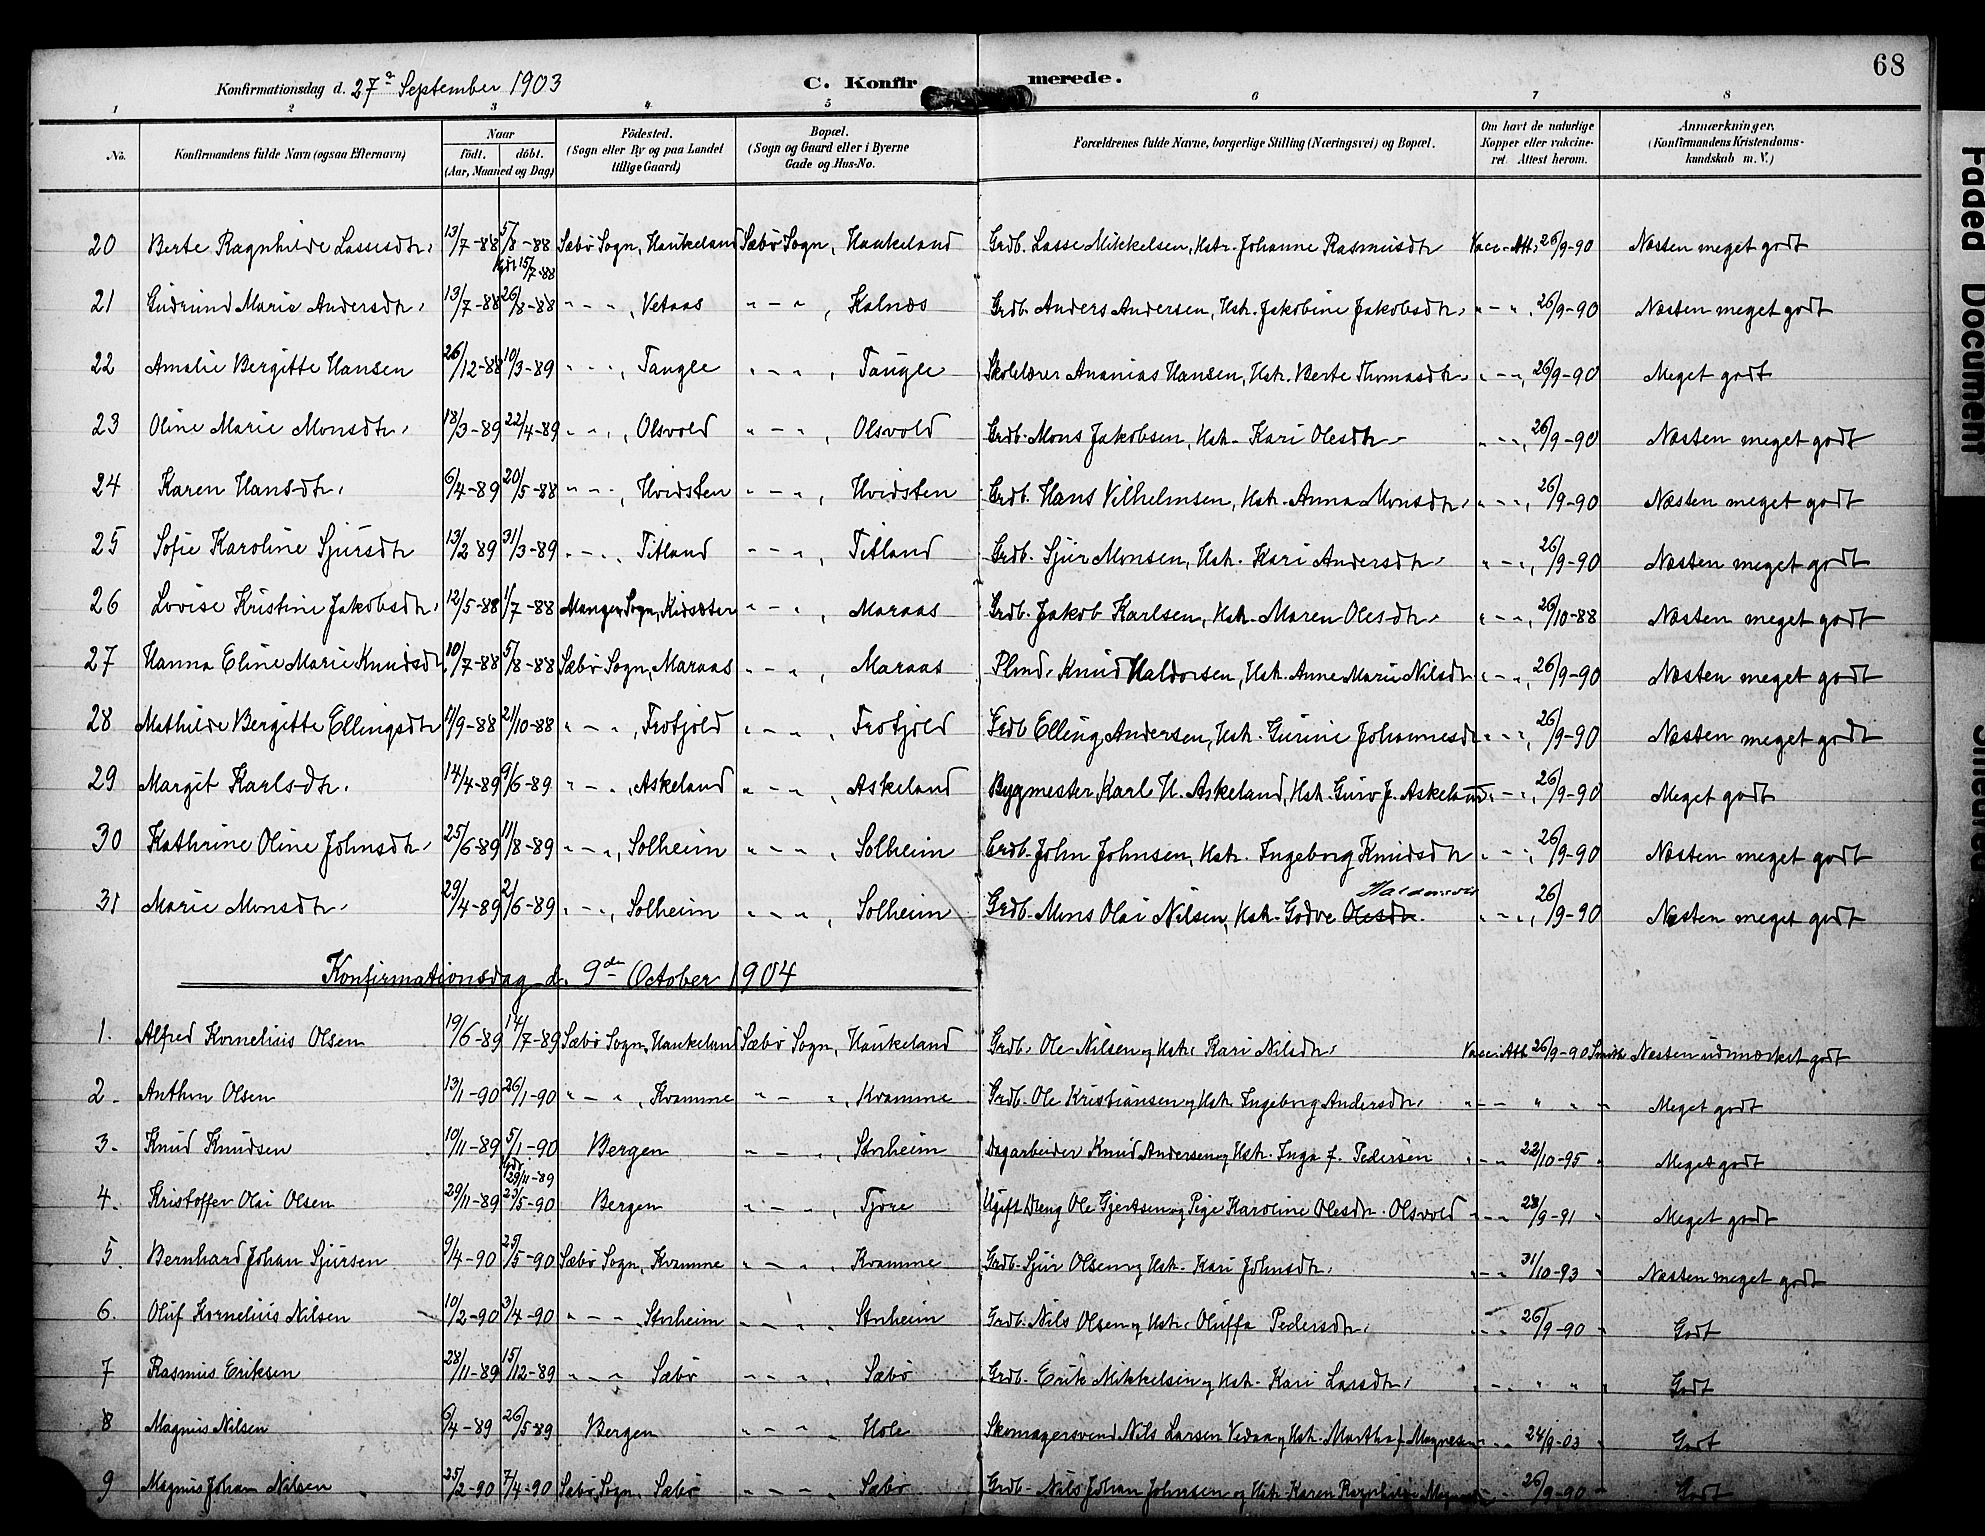 68
Konfirmationsdag d. 27de September 1903 C. Konfirmerede.
1 2 3 4 5 6 7 8
No. Konfirmandens fulde Navn (ogsaa Efternavn) Naar født. døbt. (Aar, Maaned og Dag) Fødested. (Sogn eller By og paa Landet tillige Gaard) Bopæl. (Sogn og Gaard eller i Byerne Gade og Hus-No. Forældrenes fulde Navne, borgerlige Stilling (Næringsvei) og Bopæl. Om havt de naturlige Kopper eller vakcineret. Attest herom. Anmærkninger. (Konfirmandens Kristendomskundskab m. V.)
20 Berte Ragnhilde Lassesdtr. 13/7-88 5/8-88 Hjdt 15/7-88 Sæbø Sogn, Haukeland Sæbø Sogn, Haukeland Grdb. Lasse Mikkelsen, Hstr. Johanne Rasmusdtr Vacc. Att. 26/9-90 Næsten meget godt
21 Gudrund Marie Andersdtr. 13/7-88 26/8-88 " - " , Vetaas " - " , Kalnæs Grdb. Anders Andersen, Hstr. Jakobine Jakobsdtr. " - " , 26/9-90 Næsten meget godt
22 Amalie Bergitte Hansen 26/12-88 10/3-89 " - " , Taugle " - " , Taugle Skolelærer Ananias Hansen, Hstr. Berte Thomasdtr. " - " , 26/9-90 Meget godt
23 Oline Marie Monsdtr. 18/3-89 22/4-89 " - " , Olsvold " - " , Olsvold Grdb. Mons Jakobsen, Hstr. Kari Olesdtr. " - " , 26/9-90 Næsten meget godt
24 Karen Hansdtr. 6/4-89 20/5-88 " - " , Hvidsten " - " , Hvidsten Grdb. Hans Vilhelmsen, Hstr. Anna Monsdtr. " - " , 26/9-90 Næsten meget godt
25 Sofie Karoline Sjursdtr 13/2 89 31/3-89 " - " , Titland " - " , Titland Grdb. Sjur Monsen, Hstr. Kari Andersdtr. " - " , 26/9-90 Næsten meget godt
26 Lovise Kristine Jakobsdtr. 12/5-88 1/7-88 Manger Sogn, Kidsæter " - " , Maraas Grdb. Jakob Karlsen, Hstr. Maren Olesdtr. " - " , 26/10-88 Næsten meget godt
27 Hanna Eline Marie Knudsdtr. 10/7-88 5/8-88 Sæbø Sogn, Maraas " - " , Maraas Plmd. Knud Haldorsen, Hstr. Anne Marie Nilsdtr " - " , 26/9-90 Næsten meget godt
28 Mathilde Bergitte Ellingsdtr 11/9-88 21/10-88 " - " , Trofjold " - " , Trofjold Grdb Elling Andersen, Hstr. Gurine Johannesdtr " - " , 26/9-90 Næsten meget godt
29 Margit Karlsdtr. 14/4-89 9/6-89 " - " , Askeland " - " , Askeland Bygmester Karl H. Askeland, Hstr. Guro J. Askeland " - " , 26/9-90 Meget godt
30 Kathrine Oline Johnsdtr. 25/6-89 11/8-89 " - " , Solheim " - " , Solheim Grdb. John Johnsen, Hstr. Ingeborg Knudsdtr " - " , 26/9-90 Næsten meget godt
Haldorsdtr
31 Marie Monsdtr. 29/4-89 2/6-89 " - " , Solheim " - " , Solheim Grdb. Mons Olai Nilsen, Hstr. Godve Olesdtr. " - " , 26/9-90 Næsten meget godt
Konfirmationsdag d. 9de October 1904
1. Alfred Kornelius Olsen 19/6-89 14/7-89 Sæbø Sogn, Haukeland Sæbø Sogn, Haukeland Grdb. Ole Nilsen og Hstr. Kari Nilsdtr. Vacc. Att. 26/9-90 Smith Næsten udmærket godt
2. Anthon Olsen 13/1-90 26/1-90 " - " , Kvamme " - " , Kvamme Grdb. Ole Kristiansen og Hstr. Ingeborg Andersdtr. " - " " " " Meget godt
3. Knud Knudsen 10/11-89 5/1-90 Hjdt 29/11-89 Bergen " - " , Storheim Dagarbeider Knud Andersen og Hstr. Inga f. Pedersen " - " 22/10-95 " Meget godt
4. Kristoffer Olai Olsen 29/11-89 23/5-90 Bergen " - " , Tjore Ugift Dreng Ole Gjertsen og Pige Karoline Olesdtr. Olsvold " - " 28/9-91 " Meget godt
5. Bernhard Johan Sjursen 9/4-90 25/5-90 Sæbø Sogn, Kvamme " - " , Kvamme Grdb. Sjur Olsen og Hstr. Kari Johnsdtr. " - " 31/10-93 " Næsten meget godt
6. Oluf Kornelius Nilsen 10/2-90 3/4-90 " - " , Storheim " - " , Storheim Grdb. Nils Olsen og Hstr. Oluffa Pedersdtr. " - " 26/9-90 " Godt
7 Rasmus Eriksen 28/11-89 15/12-89 " - " Sæbø " - " , Sæbø Grdb. Erik Mikkelsen og Hstr. Kari Larsdtr. " - " " " " Godt
8 Magnus Nilsen 6/4-89 26/5-89 Bergen " - " , Hole Skomagersvend Nils Larsen Vedaa og Hstr. Martha f. Magnesen " - " 24/9-03 " Godt
9 Magnus Johan Nilsen 25/2-90 7/4-90 Sæbø Sogn, Sæbø " - " , Sæbø Grdb. Nils Johan Johnsen og Hstr. Karen Ragnhilde " 26/9-90 " Godt
Faded Document